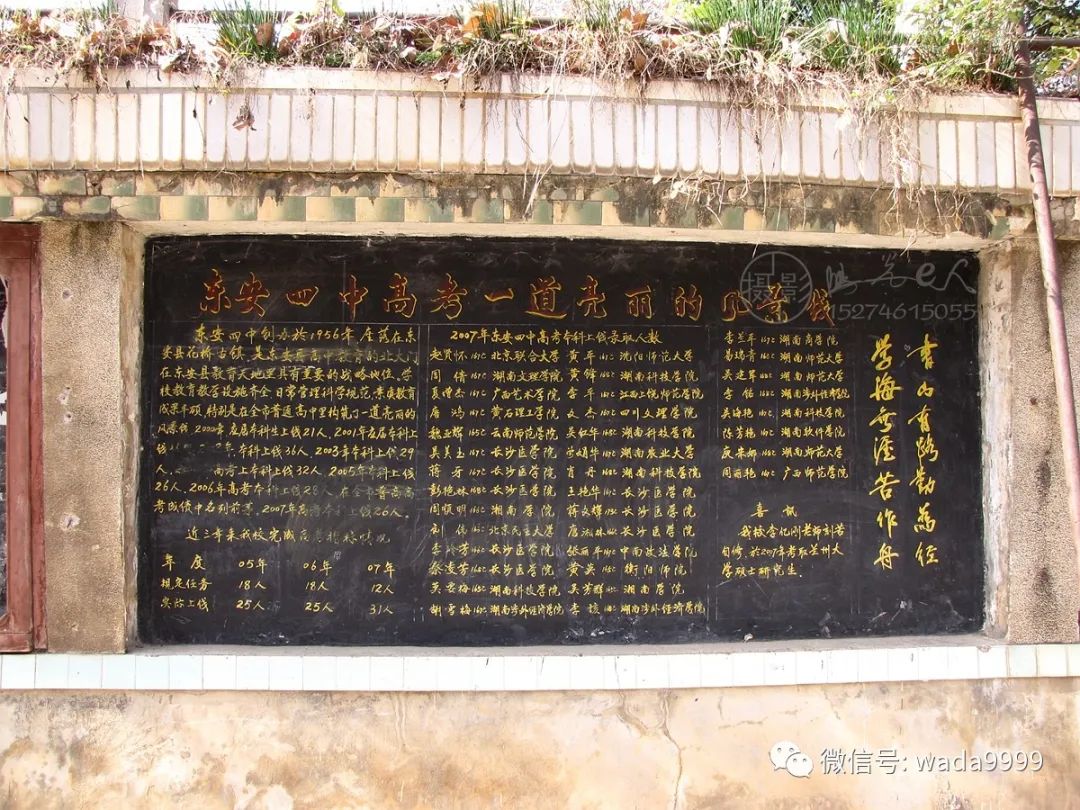 东安四中高考一道亮丽的风景线
东安四中创办於1956年 座落在东
安县花桥古镇，是东安县高中教育的北大门
在东安县教育天地里具有重要的战略地位、学
校教育教学设施齐全 日常管理科学规范 素质教育
成果丰硕 特别是在全市普通高中里构筑了一道亮丽的
风景线 2000年应届本科生上线21人、2001年应届本科上
本科上线36人、2003年本科上线29
人、高考上本科上线32人、2005年本科上线
26人、2006年高考本科上线28人、在全市普高高
考成绩中名列前茅、2007年高考本科上线26人、
近三年来我校完成高考指标情况
年 度 05年 06年 07年
规定任务 18人 18人 12人
实际上线 25人 25人 31人
2007年东安四中高考本科上线录取人数
赵贤怀 161C 北京联合大学 黄平 161C 沈阳师范大学
周倩 167C 湖南文理学院 黄锋 湖南科技学院
广西艺术学院 雷平 江西上饶师范学院
唐鸿 黄石理工学院 文杰 四川文理学院
魏亚辉 165C 云南师范学院 吴红华 湖南科技学院
吴美玉 长沙医学院 湖南农业大学
蒋牙 长沙医学院 肖丹 湖南科技学院
彭艳林 168C 长沙医学院 王艳华 长沙医学院
周顺明 湖南学院 蒋文辉 长沙医学院
刘伟 北京民主大学 唐湘林 长沙医学院
李芳 长沙医学院 张丽平 中南政法学院
秦凌芳 长沙医学院 黄英 衡阳师院
吴云梅 湖南科技学院 吴芳群 湖南学院
胡雪梅 湖南涉外经济学院 李 湖南涉外经济学院
李兰平 167C 湖南商学院
易瑞青 湖南师范大学
吴建军 湖南师范大学
李铭 湖南涉外经济学院
吴海艳 湖南科技学院
陈芳艳 湖南软件学院
湖南师范大学
周丽艳 广西师范学院
喜 讯
我校李化刚老师刻苦
自修、於2007年考取兰州大
学硕士研究生.
书山有路勤为径
学海无涯苦作舟
摄影
e人
15274615071
微信号: wada9999